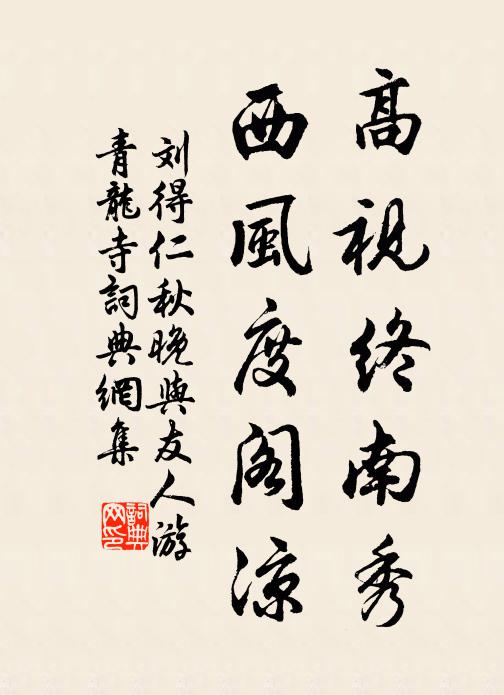 高視終南秀
西風度閣涼
刘得仁秋晚與友人游
青龍寺詞典網集
詞典
网印